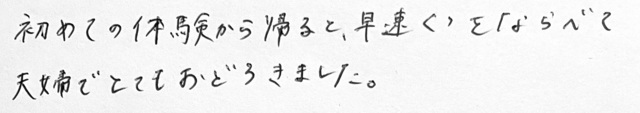 初めての体験から帰ると、早速くつをならべて
夫婦でとてもおどろきました。